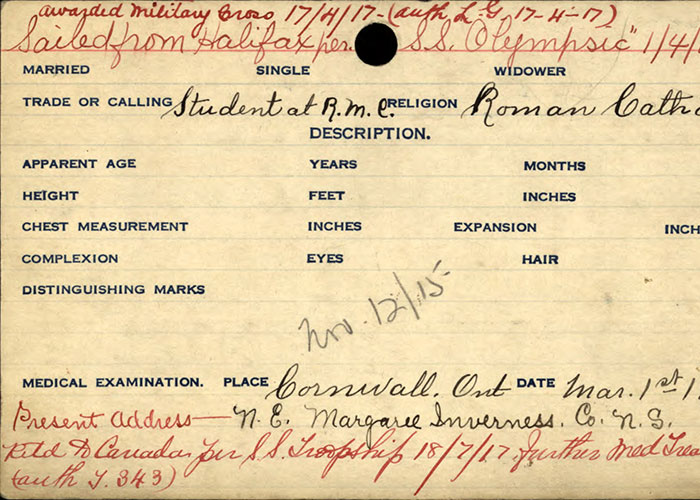 awarded Military Cross 17/4/17- (auth L.G. 17-4-17)
Sailed from Halifax per S.S. Olympsic" 1/4/
MARRIED SINGLE WIDOWER
TRADE OR CALLING Student at R.M.C. RELIGION Roman Catho
DESCRIPTION.
APPARENT AGE YEARS MONTHS
HEIGHT FEET INCHES
CHEST MEASUREMENT INCHES EXPANSION INCH
COMPLEXION EYES HAIR
DISTINGUISHING MARKS
Nov. 12/15
MEDICAL EXAMINATION. PLACE Cornwall. Ont DATE Mar. 1st 1
Present Address — N.E. Margaree Inverness. Co. N.S.
Retd to Canada per S.S. Troopship 18/7/17. further Med Trea
(auth T. 343)